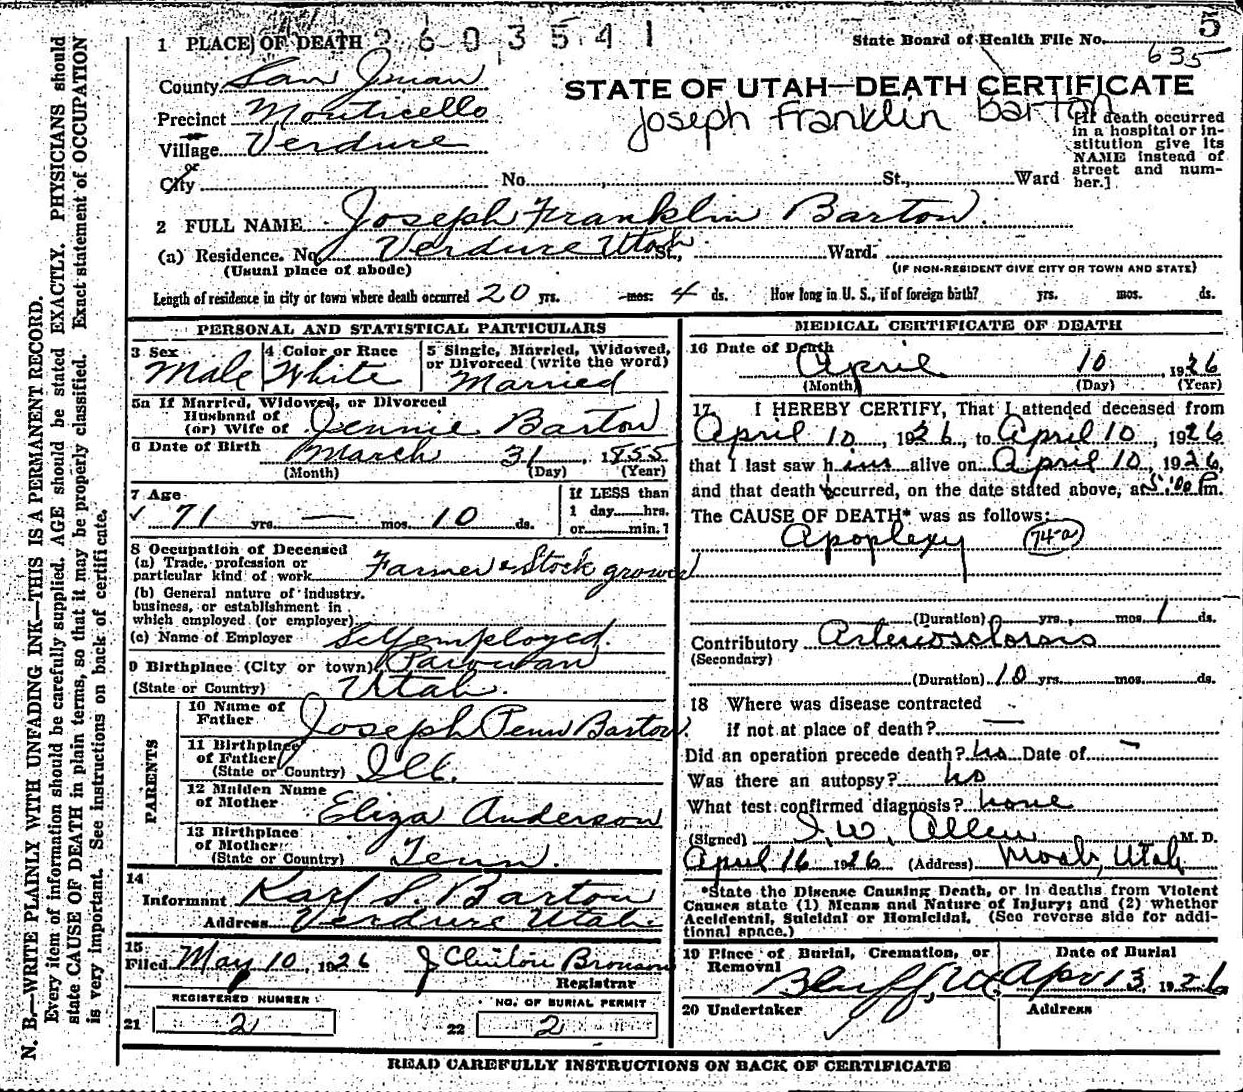 2603541
5
State Board of Health File No. 635
1 PLACE OF DEATH
County San Juan
STATE OF UTAH—DEATH CERTIFICATE
Precinct Monticello
Joseph Franklin Barton
Village Verdure
or
City No. , St., Ward
[If death occurred
in a hospital or in-
stitution give its
NAME instead of
street and num-
ber.]
2 FULL NAME Joseph Franklin Barton
(a) Residence. No. Verdure Utah St., Ward.
(Usual place of abode)
(IF NON-RESIDENT GIVE CITY OR TOWN AND STATE)
Length of residence in city or town where death occurred 20 yrs. mos. 4 ds. How long in U. S., if of foreign birth? yrs. mos. ds.
PERSONAL AND STATISTICAL PARTICULARS
3 Sex
Male
4 Color or Race
White
5 Single, Married, Widowed,
or Divorced (write the word)
Married
5a If Married, Widowed, or Divorced
Husband of
(or) Wife of Jennie Barton
6 Date of Birth March 31, 1855
(Month) (Day) (Year)
7 Age
71 yrs. — mos. 10 ds.
If LESS than
1 day hrs.
or min.?
8 Occupation of Deceased
(a) Trade, profession or
particular kind of work Farmer & Stock grower
(b) General nature of industry,
business, or establishment in
which employed (or employer)
(c) Name of Employer Self employed.
9 Birthplace (City or town) Parowan
(State or Country) Utah.
PARENTS
10 Name of
Father Joseph Penn Barton.
11 Birthplace
of Father
(State or Country) Ill.
12 Maiden Name
of Mother Eliza Anderson
13 Birthplace
of Mother
(State or Country) Tenn.
14
Informant Karl S. Barton
Address Verdure Utah.
15
Filed May 10, 1926 J Clinton Bronson
Registrar
REGISTERED NUMBER
21 2
NO. OF BURIAL PERMIT
22 2
MEDICAL CERTIFICATE OF DEATH
16 Date of Death
April 10 1926
(Month) (Day) (Year)
17 I HEREBY CERTIFY, That I attended deceased from
April 10, 1926, to April 10, 1926
that I last saw him alive on April 10, 1926,
and that death occurred, on the date stated above, at 5:00 Pm.
The CAUSE OF DEATH* was as follows:
Apoplexy 74-a
(Duration) yrs., mos. 1 ds.
Contributory Arterosclorosis
(Secondary)
(Duration) 10 yrs. mos. ds.
18 Where was disease contracted
if not at place of death? —
Did an operation precede death? no Date of —
Was there an autopsy? no
What test confirmed diagnosis? none
(Signed) I. W. Allen M. D.
April 16 1926 (Address) Moab, Utah
*State the Disease Causing Death, or in deaths from Violent
Causes state (1) Means and Nature of Injury; and (2) whether
Accidental, Suicidal or Homicidal. (See reverse side for addi-
tional space.)
19 Place of Burial, Cremation, or
Removal
Bluff, Ut.
Date of Burial
Apr 13, 1926
20 Undertaker
Address
READ CAREFULLY INSTRUCTIONS ON BACK OF CERTIFICATE
N. B.—WRITE PLAINLY WITH UNFADING INK—THIS IS A PERMANENT RECORD.
Every item of information should be carefully supplied. AGE should be stated EXACTLY. PHYSICIANS should
state CAUSE OF DEATH in plain terms, so that it may be properly classified. Exact statement of OCCUPATION
is very important. See instructions on back of certificate.